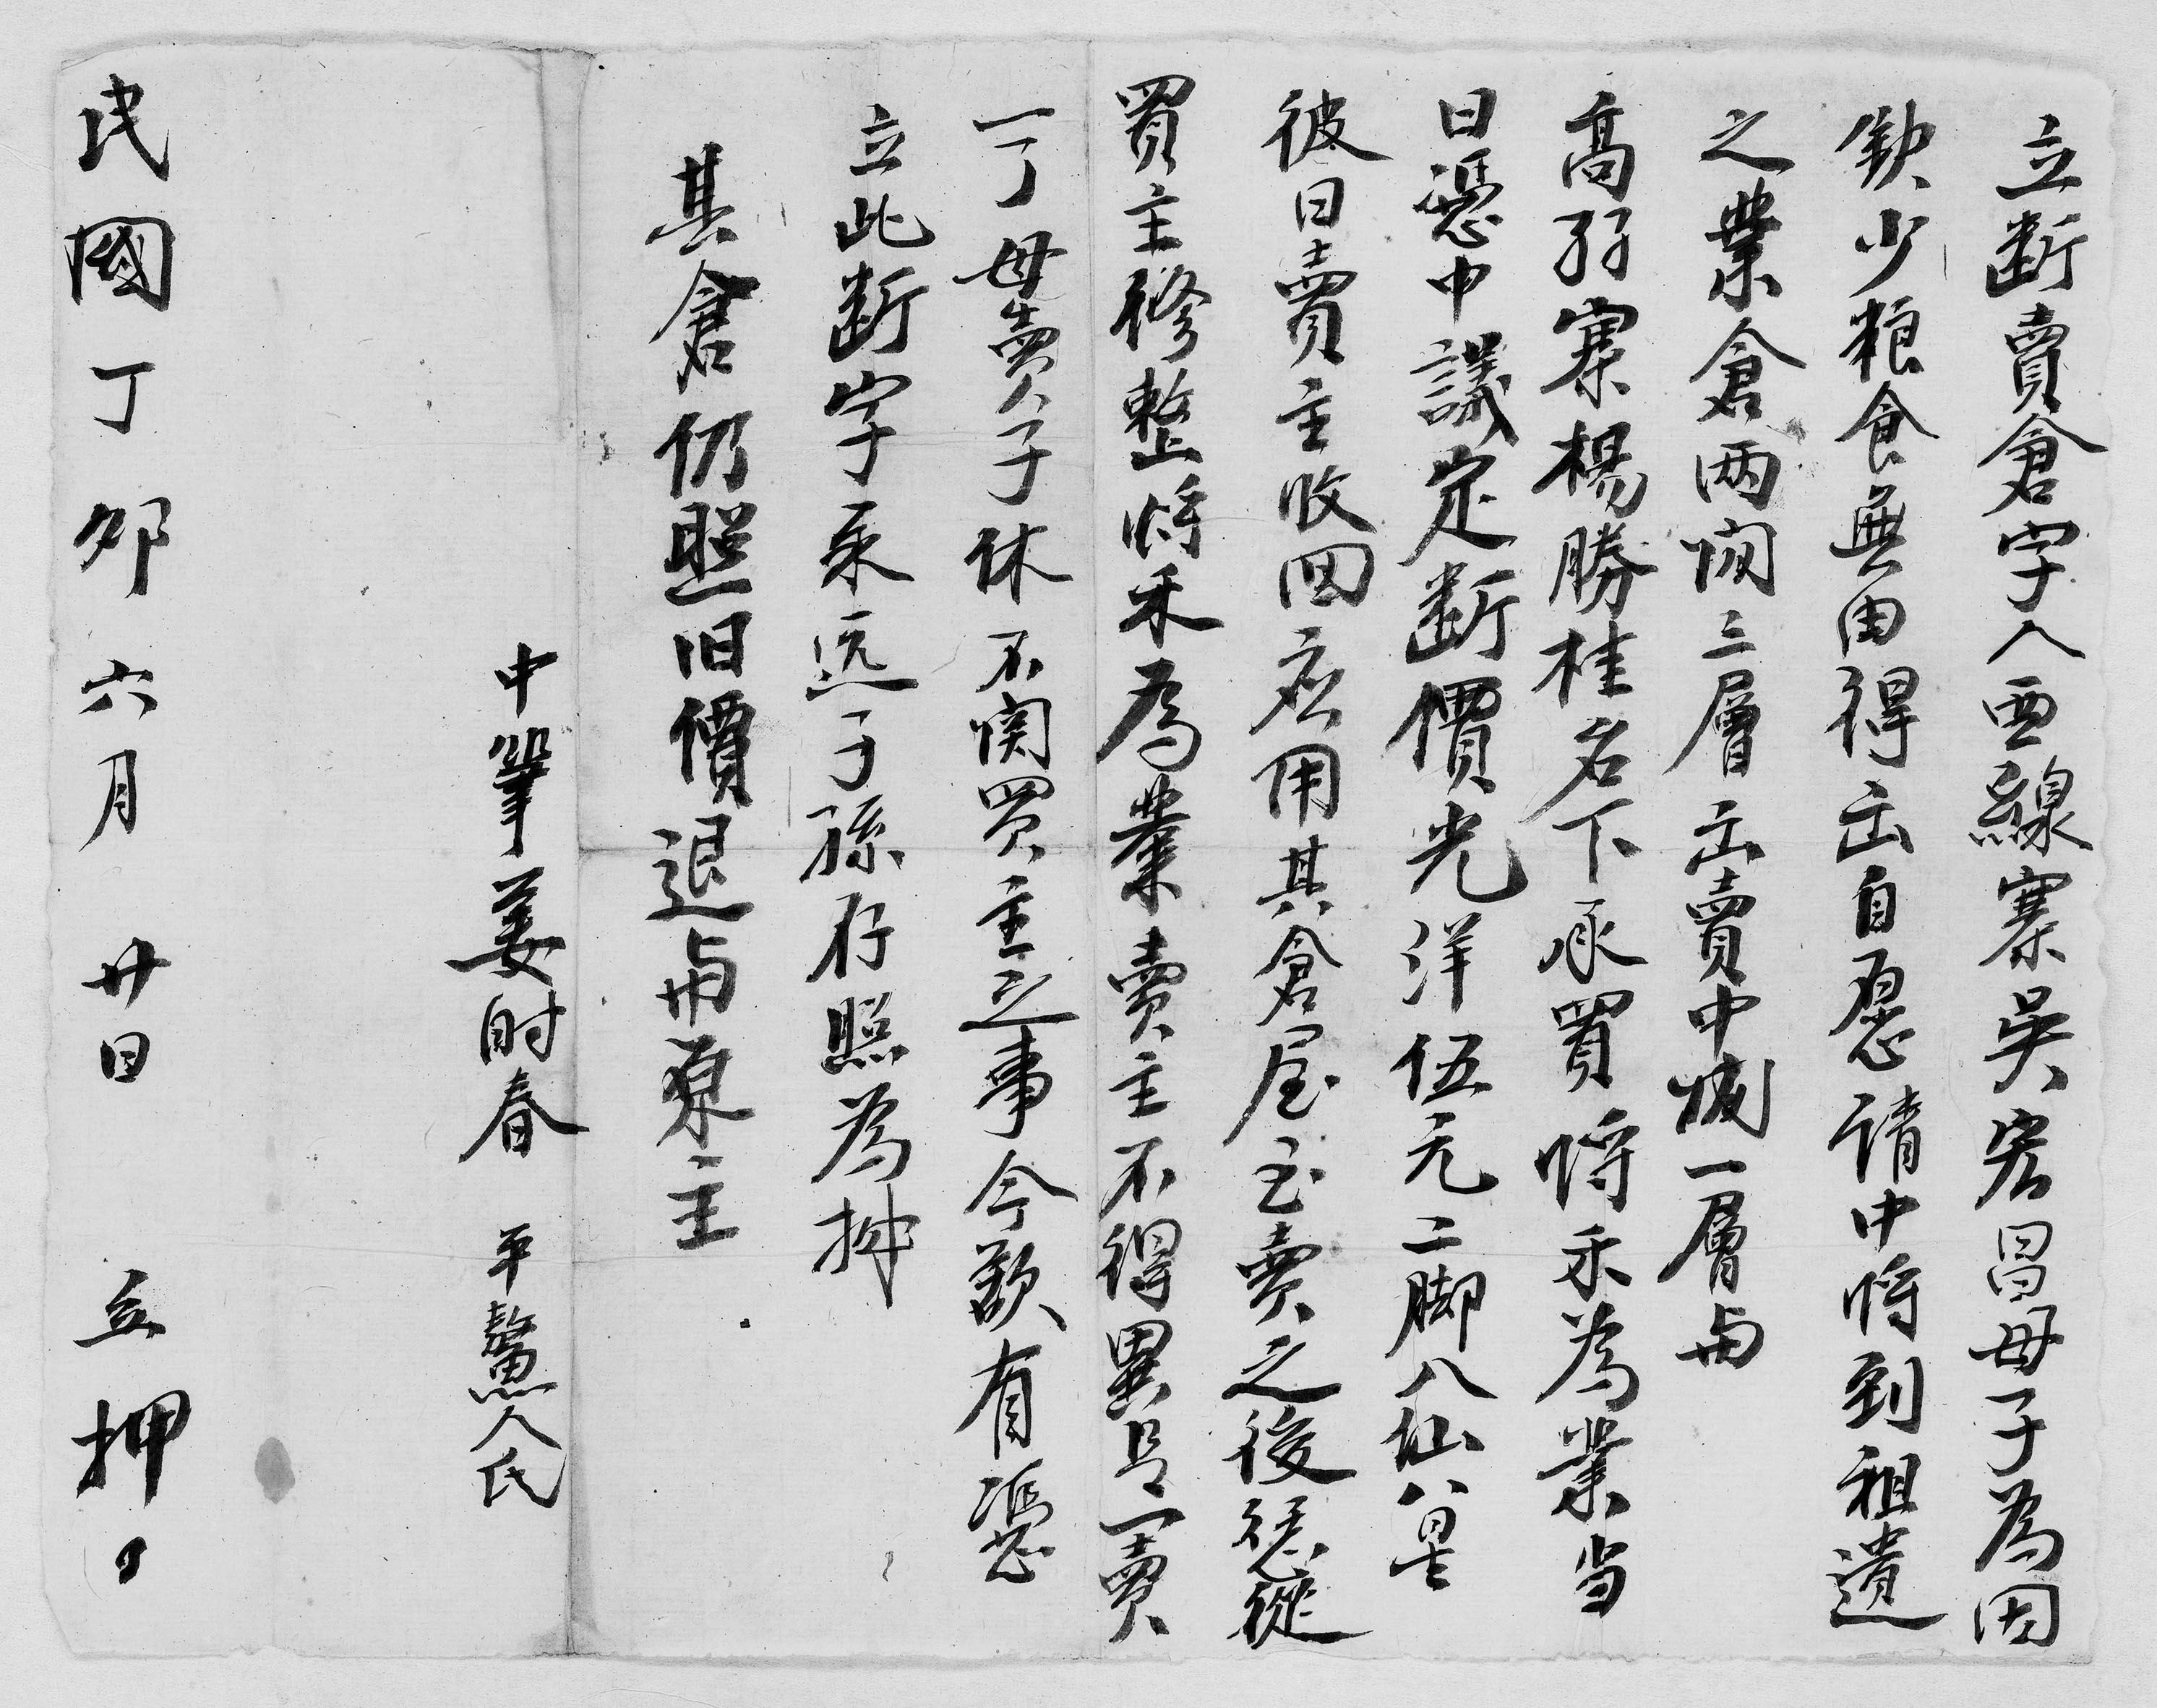 立断賣倉字人西線寨吳宏昌母子為因
欽少粮食無由得出自愿請中將到祖遺
之業倉两间三層出賣中截一層與
高孖寨楊勝桂名下承買將禾為業当
日憑中議定断價光洋伍元二脚八仙八星
彼日賣主收回应用其倉屋至賣之後
買主修整將禾為業賣主不得異言一賣
一了母賣子休不関買主之事今欲有憑
立此断字永远子孫存照為押
其倉仍照旧價退與原主
中筆姜时春 平鰲人氏
民國丁卯六月廿日 立押